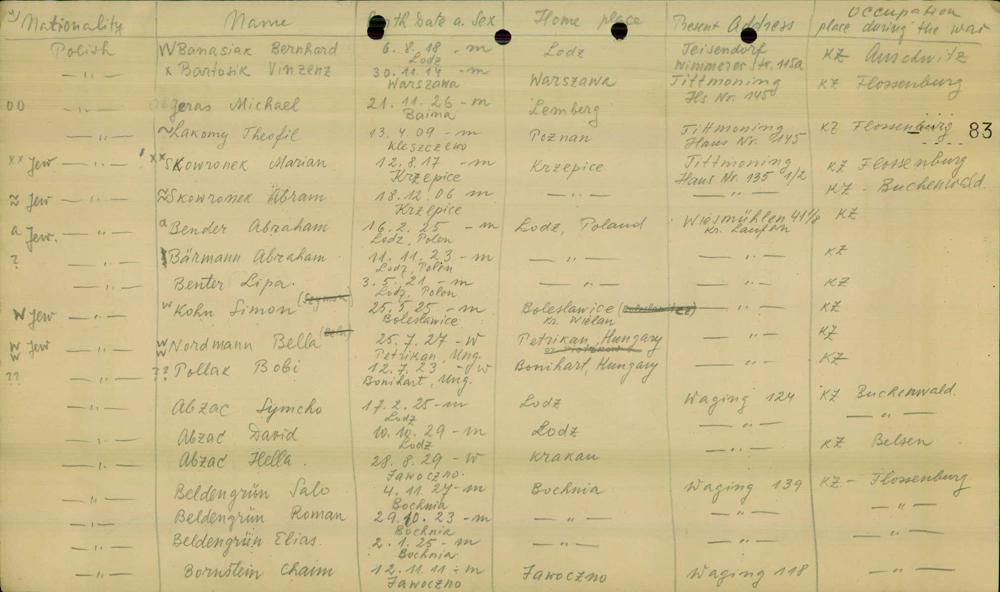 Nationality Name Birth Date a. Sex Home place Present Address Occupation place during the war
Polish W Banasiak Bernhard 6.8.18 - m Lodz Lodz Teisendorf Wimmerer Str. 115a KZ Auschwitz
— " — x Bartosik Vinzenz 30.11.14 - m Warszawa Warszawa Tittmoning Hs Nr. 145 KZ Flossenburg
00 — " — geras Michael 21.11.26 - m Baima Lemberg
— " — ~ Lakomy Theofil 13.4.09 - m Kleszczewo Poznan Tittmoning Haus Nr. 145 KZ Flossenburg 83
xx Jew — " — xx Skowronek Marian 12.8.17 - m Krzepice Krzepice Tittmoning Haus Nr. 135 1/2 KZ Flossenburg
≈ Jew — " — ≈ Skowronek Abram 18.12.06 - m Krzepice — " — — " — KZ - Buchenwald.
a Jew. — " — a Bender Abraham 16.2.25 - m Lodz, Polen Lodz, Poland Wiesmühlen 41 1/8 Kr. Laufen KZ
? — " — Bärmann Abraham 11.11.23 - m Lodz, Polen — " — — " — KZ
— " — Benter Lipa. 3.5.21 - m Lodz, Polen — " — — " — KZ
W Jew — " — W Kohn Simon (Szymon) 25.5.25 - m Boleslawice Boleslawice Kr. Wielan — " — KZ
W W Jew — " — W W Nordmann Bella (Bela) 25.7.27 - W Petrikan, Ung. Petrikan, Hungary — " — KZ
?? — " — ?? Pollak Bobi 12.7.23 - W Bonihart, Ung. Bonihart, Hungary — " — KZ
— " — Abzac Symcho 17.2.25 - m Lodz Lodz Waging 124 KZ Buchenwald.
— " — Abzac David 10.10.29 - m Lodz Lodz — " — — " —
— " — Abzac Hella. 28.8.29 - W Jawoczno. Krakau — " — KZ Belsen
— " — Beldengrün Salo 4.11.27 - m Bochnia Bochnia Waging 139 KZ - Flossenburg
— " — Beldengrün Roman 29.10.23 - m Bochnia — " — — " — — " —
— " — Beldengrün Elias. 2.1.25 - m Bochnia — " — — " — — " —
— " — Bornstein Chaim 12.11.11 - m Jawoczno Jawoczno Waging 118 — " —